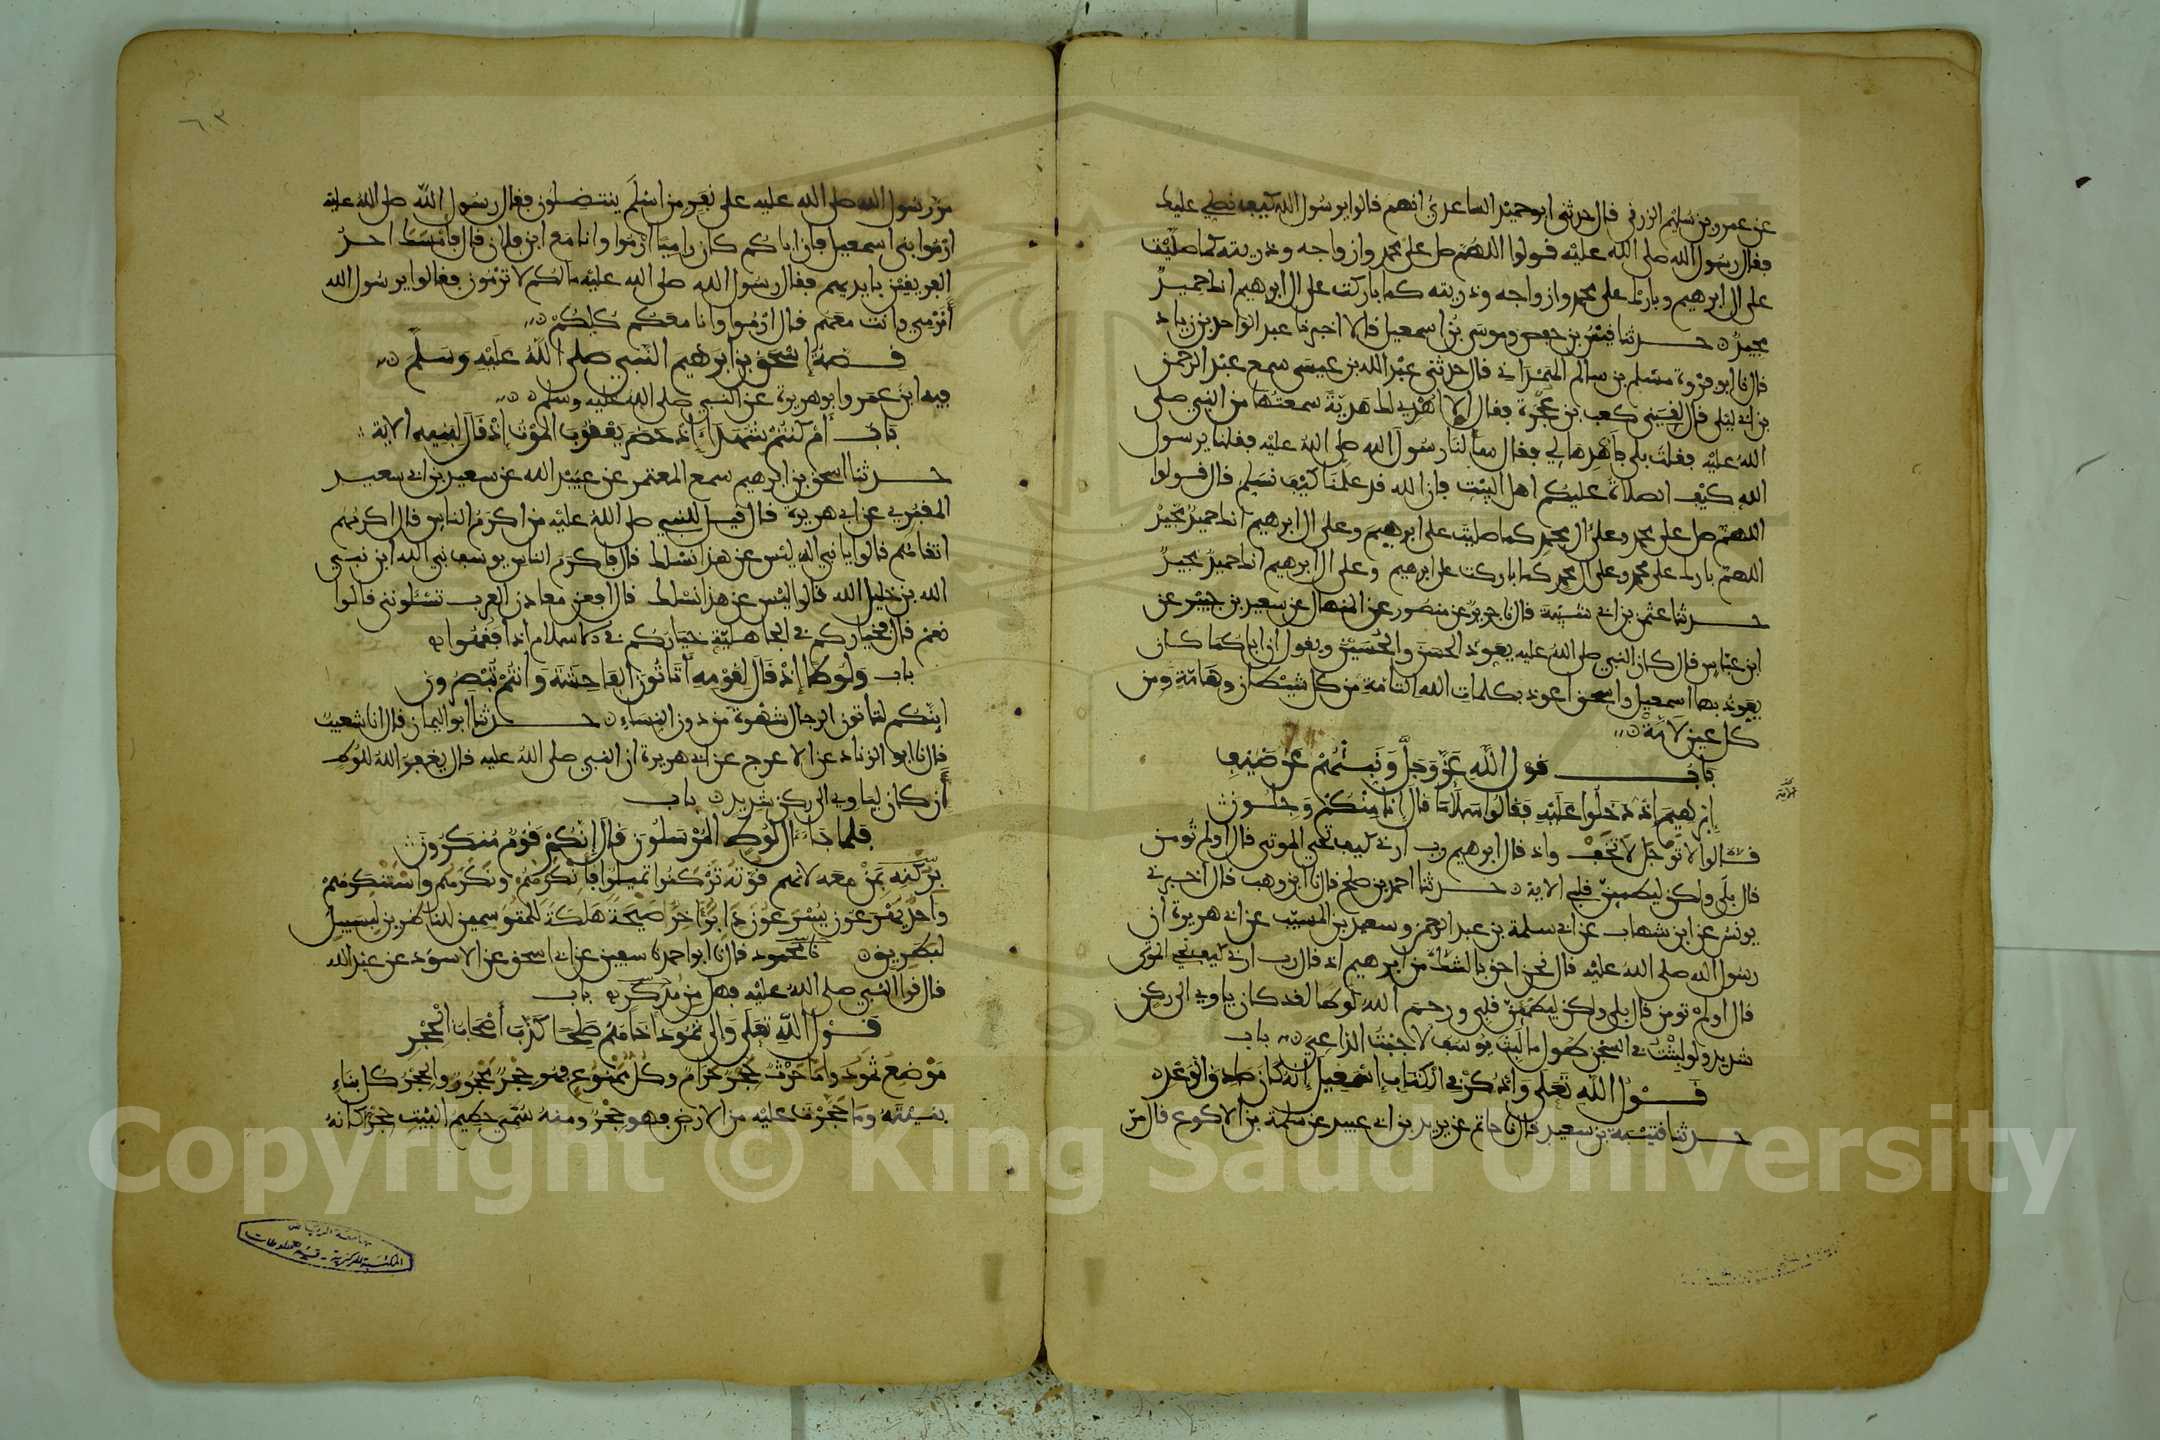 عن عمرو بن سليم الزرقي قال حدثني ابو حميد الساعدي انهم قالوا يرسول الله كيف نصلي عليك
فقال رسول الله صلى الله عليه قولوا اللهم صل على محمد وازواجه وذريته كما صليت
على ال ابرهيم وبارك على محمد وازواجه وذريته كما باركت على ال ابرهيم انك حميد
مجيد حدثنا قيس بن حفص وموسى بن اسمعيل قالا اخبرنا عبد الواحد بن زياد
قال نا ابو فروة مسلم بن سالم الهمداني قال حدثني عبد الله بن عيسى سمع عبد الرحمن
بن ابي ليلى قال لقيني كعب بن عجرة فقال الا اهدي لك هدية سمعتها من النبي صلى
الله عليه فقلت بلى فاهدها لي فقال سالنا رسول الله صلى الله عليه فقلنا يرسول
الله كيف الصلاة عليكم اهل البيت فان الله قد علمنا كيف نسلم قال قولوا
اللهم صل على محمد وعلى ال محمد كما صليت على ابرهيم وعلى ال ابرهيم انك حميد مجيد
اللهم بارك على محمد وعلى ال محمد كما باركت على ابرهيم وعلى ال ابرهيم انك حميد مجيد
حدثنا عثمن بن ابي شيبة قال نا جرير عن منصور عن المنهال عن سعيد بن جبير عن
ابن عباس قال كان النبي صلى الله عليه يعوذ الحسن والحسين ويقول ان اباكما كان
يعوذ بها اسمعيل واسحق اعوذ بكلمات الله التامة من كل شيطان وهامة ومن
كل عين لامة
باب قول الله عز وجل ونبئهم عن ضيف
ابرهيم إذ دخلوا عليه فقالوا سلاما قال انا منكم وجلون
قالوا لا توجل لا تخف واذ قال ابرهيم رب ارني كيف تحي الموتى قال اولم تومن
قال بلى ولكن ليطمين قلبي الاية حدثنا احمد بن صلح قال نا ابن وهب قال اخبرني
يونس عن ابن شهاب عن ابي سلمة بن عبد الرحمن وسعيد بن المسيب عن ابي هريرة ان
رسول الله صلى الله عليه قال نحن احق بالشك من ابرهيم اذ قال رب ارني كيف تحي الموتى
قال اولم تومن قال بلى ولكن ليطمين قلبي ورحم الله لوطا لقد كان ياوي الى ركن
شديد ولو لبثت في السجن طول ما لبث يوسف لاجبت الداعي باب
قول الله تعلى واذكر في الكتاب إسمعيل إنه كان صادق الوعد
حدثنا قتيبة بن سعيد قال نا حاتم عن يزيد بن ابي عبيد عن سلمة بن الاكوع قال مر
مر رسول الله صلى الله عليه على نفر من اسلم ينتضلون فقال رسول الله صلى الله عليه
ارموا بني اسمعيل فان اباكم كان راميا ارموا وانا مع ابن فلان قال فامسك احد
الفريقين بايديهم فقال رسول الله صلى الله عليه ما لكم لا ترمون فقالوا يرسول الله
أنرمي وانت معهم قال ارموا وانا معكم كلكم
قصة إسحق بن ابرهيم النبي صلى الله عليه وسلم
فيه ابن عمر وابو هريرة عن النبي صلى الله عليه وسلم
باب أم كنتم شهداء إذ حضر يعقوب الموت إذ قال لبنيه الاية
حدثنا اسحق بن ابرهيم سمع المعتمر عن عبيد الله عن سعيد بن ابي سعيد
المقبري عن ابي هريرة قال قيل للنبي صلى الله عليه من اكرم الناس قال اكرمهم
اتقاهم قالوا يا نبي الله ليس عن هذا نسلك قال فاكرم الناس يوسف نبي الله ابن نبي
الله بن خليل الله قالوا ليس عن هذا نسلك قال افعن معادن العرب تسئلونني قالوا
نعم قال فخياركم في الجاهلية خياركم في الاسلام اذا فقهوا
باب ولوطا إذ قال لقومه أتاتون الفاحشة وانتم تبصرون
اينكم لتاتون الرجال شهوة من دون النساء حدثنا ابو اليمان قال انا شعيب
قال نا ابو الزناد عن الاعرج عن ابي هريرة ان النبي صلى الله عليه قال يغفر الله للوط
أن كان لياوي الى ركن شديد باب
فلما جاء ال لوط المرسلون قال إنكم قوم منكرون
بركنه بمن معه لانهم قوته تركنوا تميلوا فانكرهم ونكرهم واستنكرهم
واحد يهرعون يسرعون دابر اخر صيحة هلكة للمتوسمين للناظرين لبسبيل
لبطريق نا محمود قال نا ابو احمد نا سفين عن ابي اسحق عن الاسود عن عبد الله
قال قرا النبي صلى الله عليه فهل من مدكر باب
قول الله تعلى والى ثمود اخاهم صلحا كذب أصحاب الحجر
موضع ثمود واما حرث حجر حرام وكل ممنوع فهو حجر محجور والحجر كل بناء
بنيته وما حجرت عليه من الارض فهو حجر ومنه سمي حطيم البيت حجرا كانه
جامعة الرياض
المكتبة المركزية - قسم المخطوطات
Copyright © King Saud University